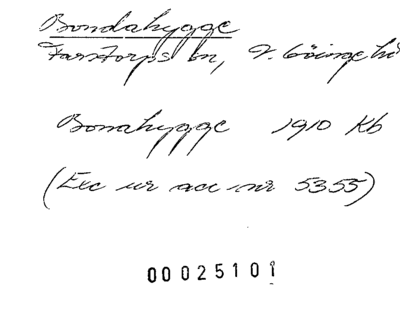 Bondahygge
Farstorps sn, V. Göinge hd
Bonnahygge 1910 Kb
(Exc ur acc nr 5355)
00025101